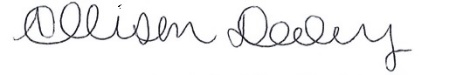 Allison Deeley